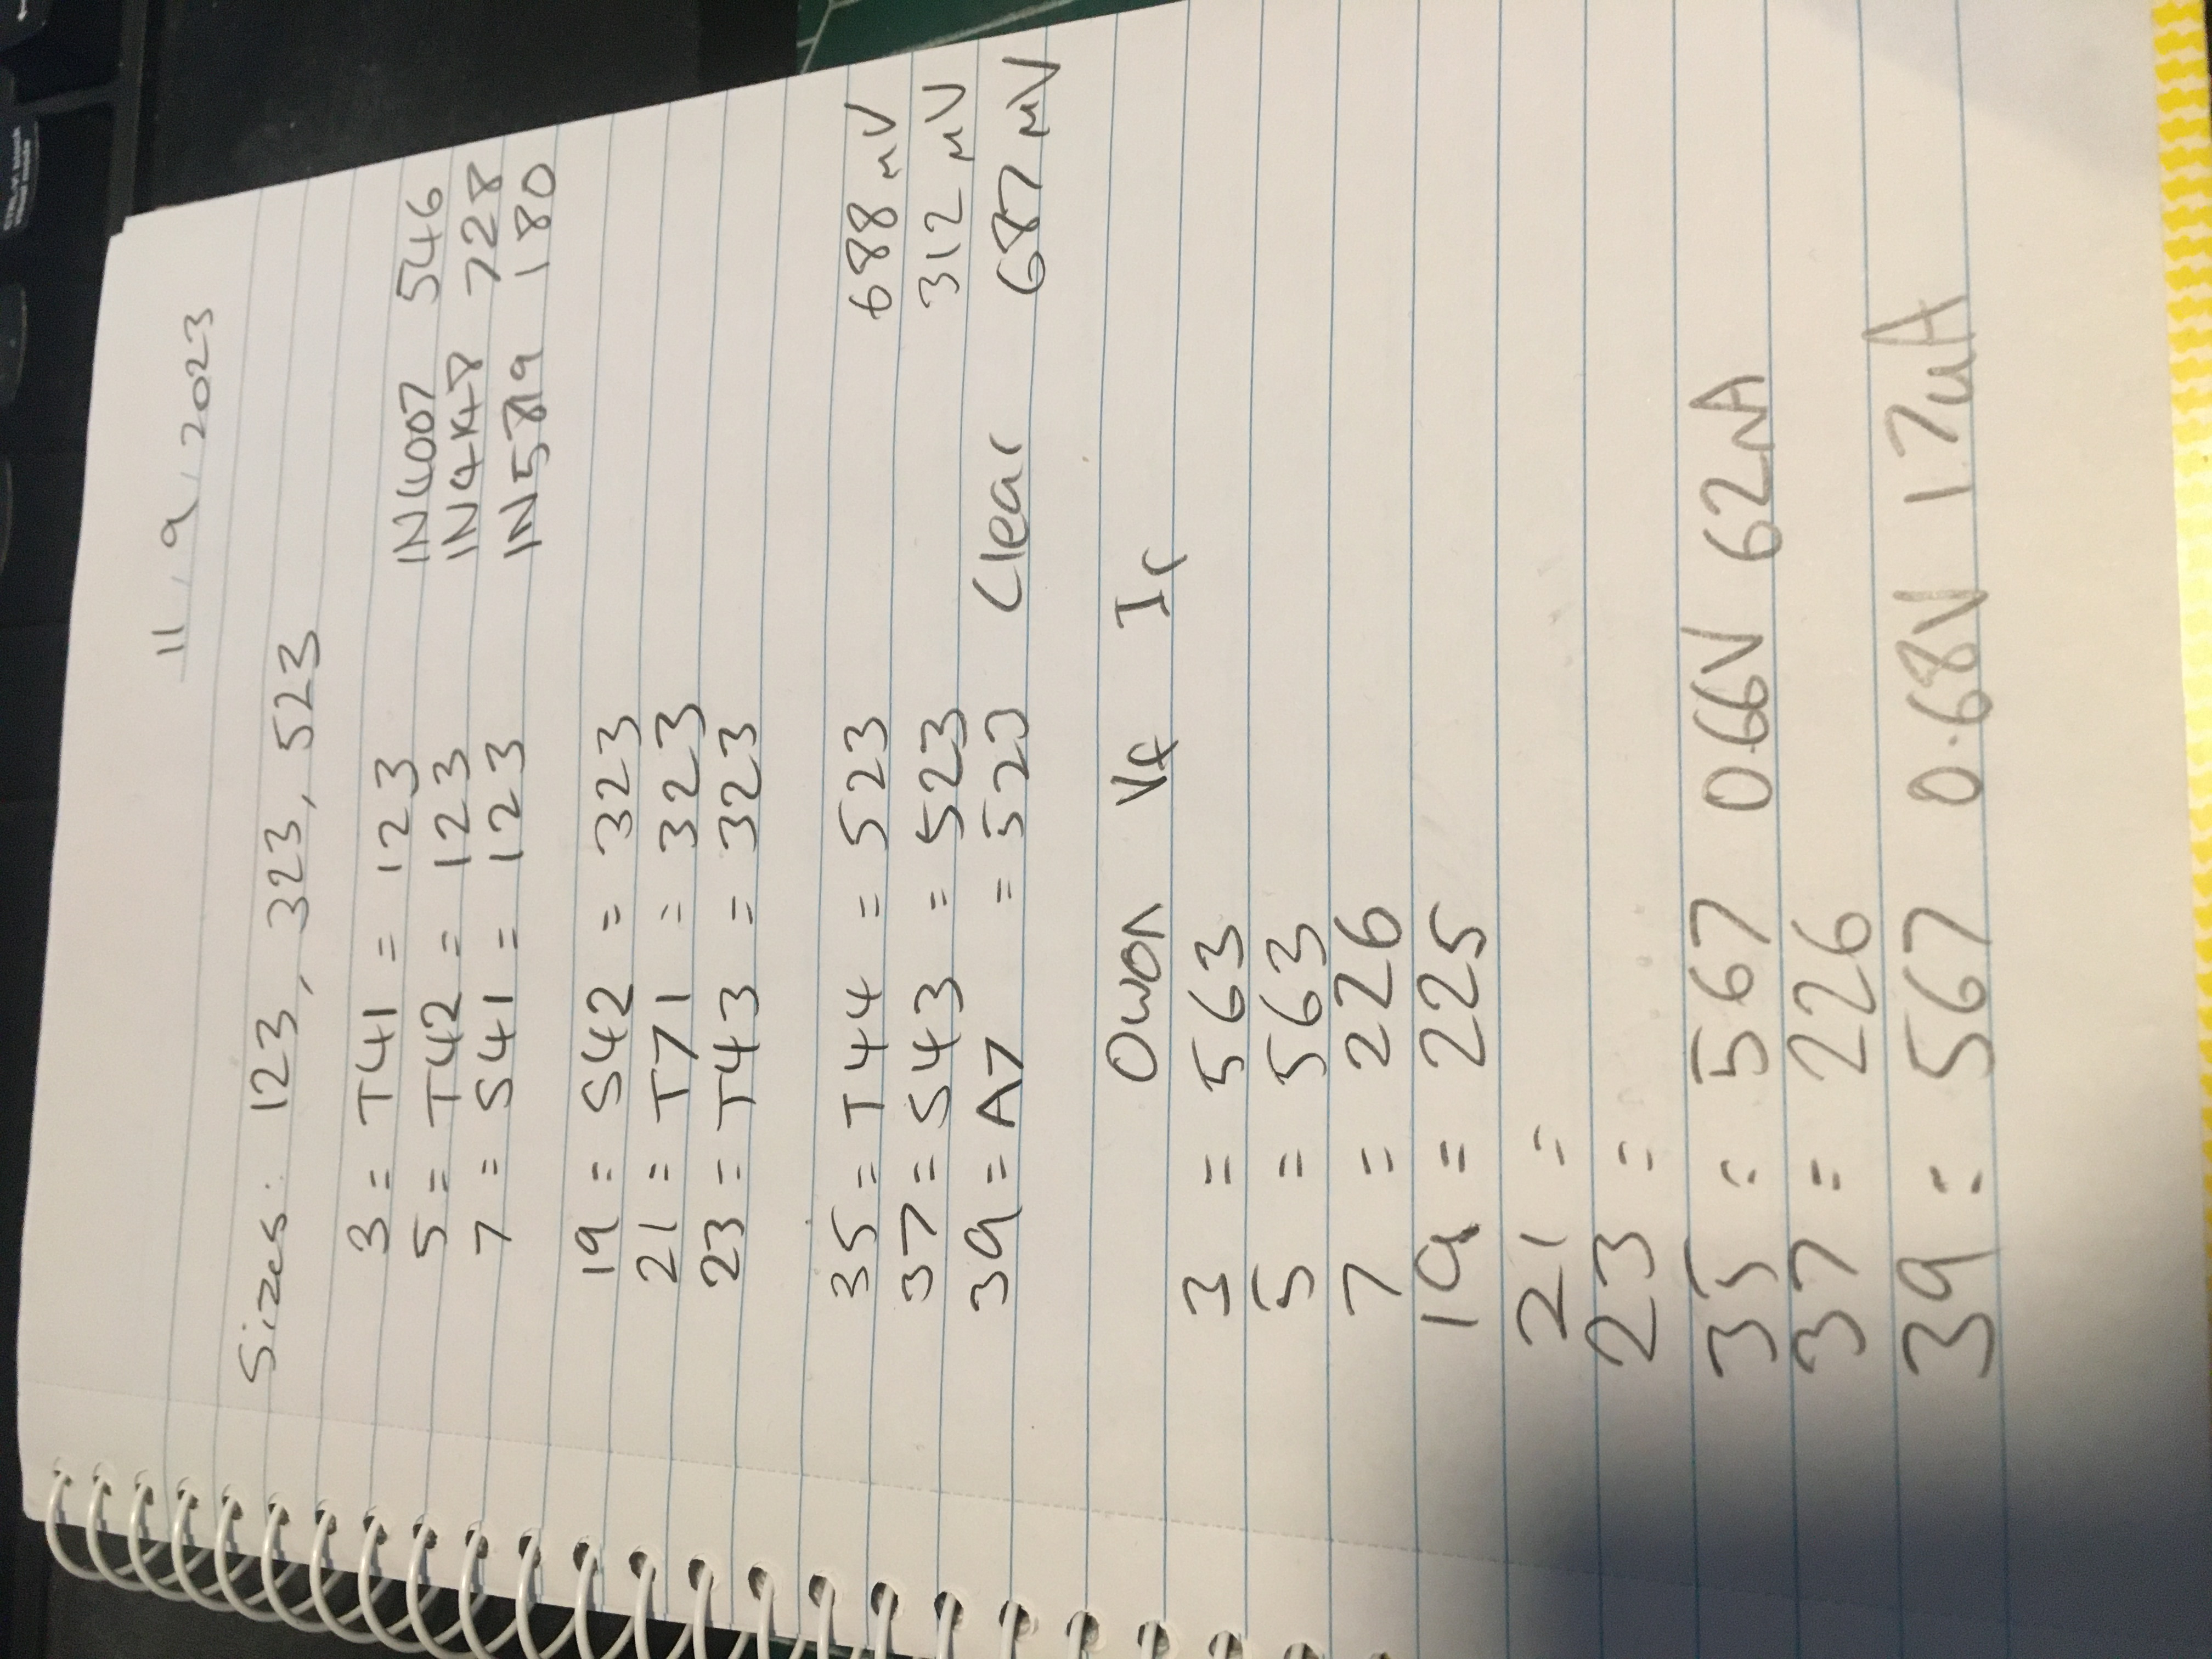 11.9.2023
Sizes: 123, 323, 523
3 = T41 = 123 1N4007 546
5 = T42 = 123 1N4148 728
7 = S41 = 123 1N5819 180
19 = S42 = 323
21 = T71 = 323
23 = T43 = 323
35 = T44 = 523 688 mV
37 = S43 = 523 312 mV
39 = A7 = 523 Clear 687 mV
Owon Vf Ir
3 = 563
5 = 563
7 = 226
19 = 225
21 =
23 =
35 = 567 0.66V 62nA
37 = 226
39 = 567 0.68V 1.7uA